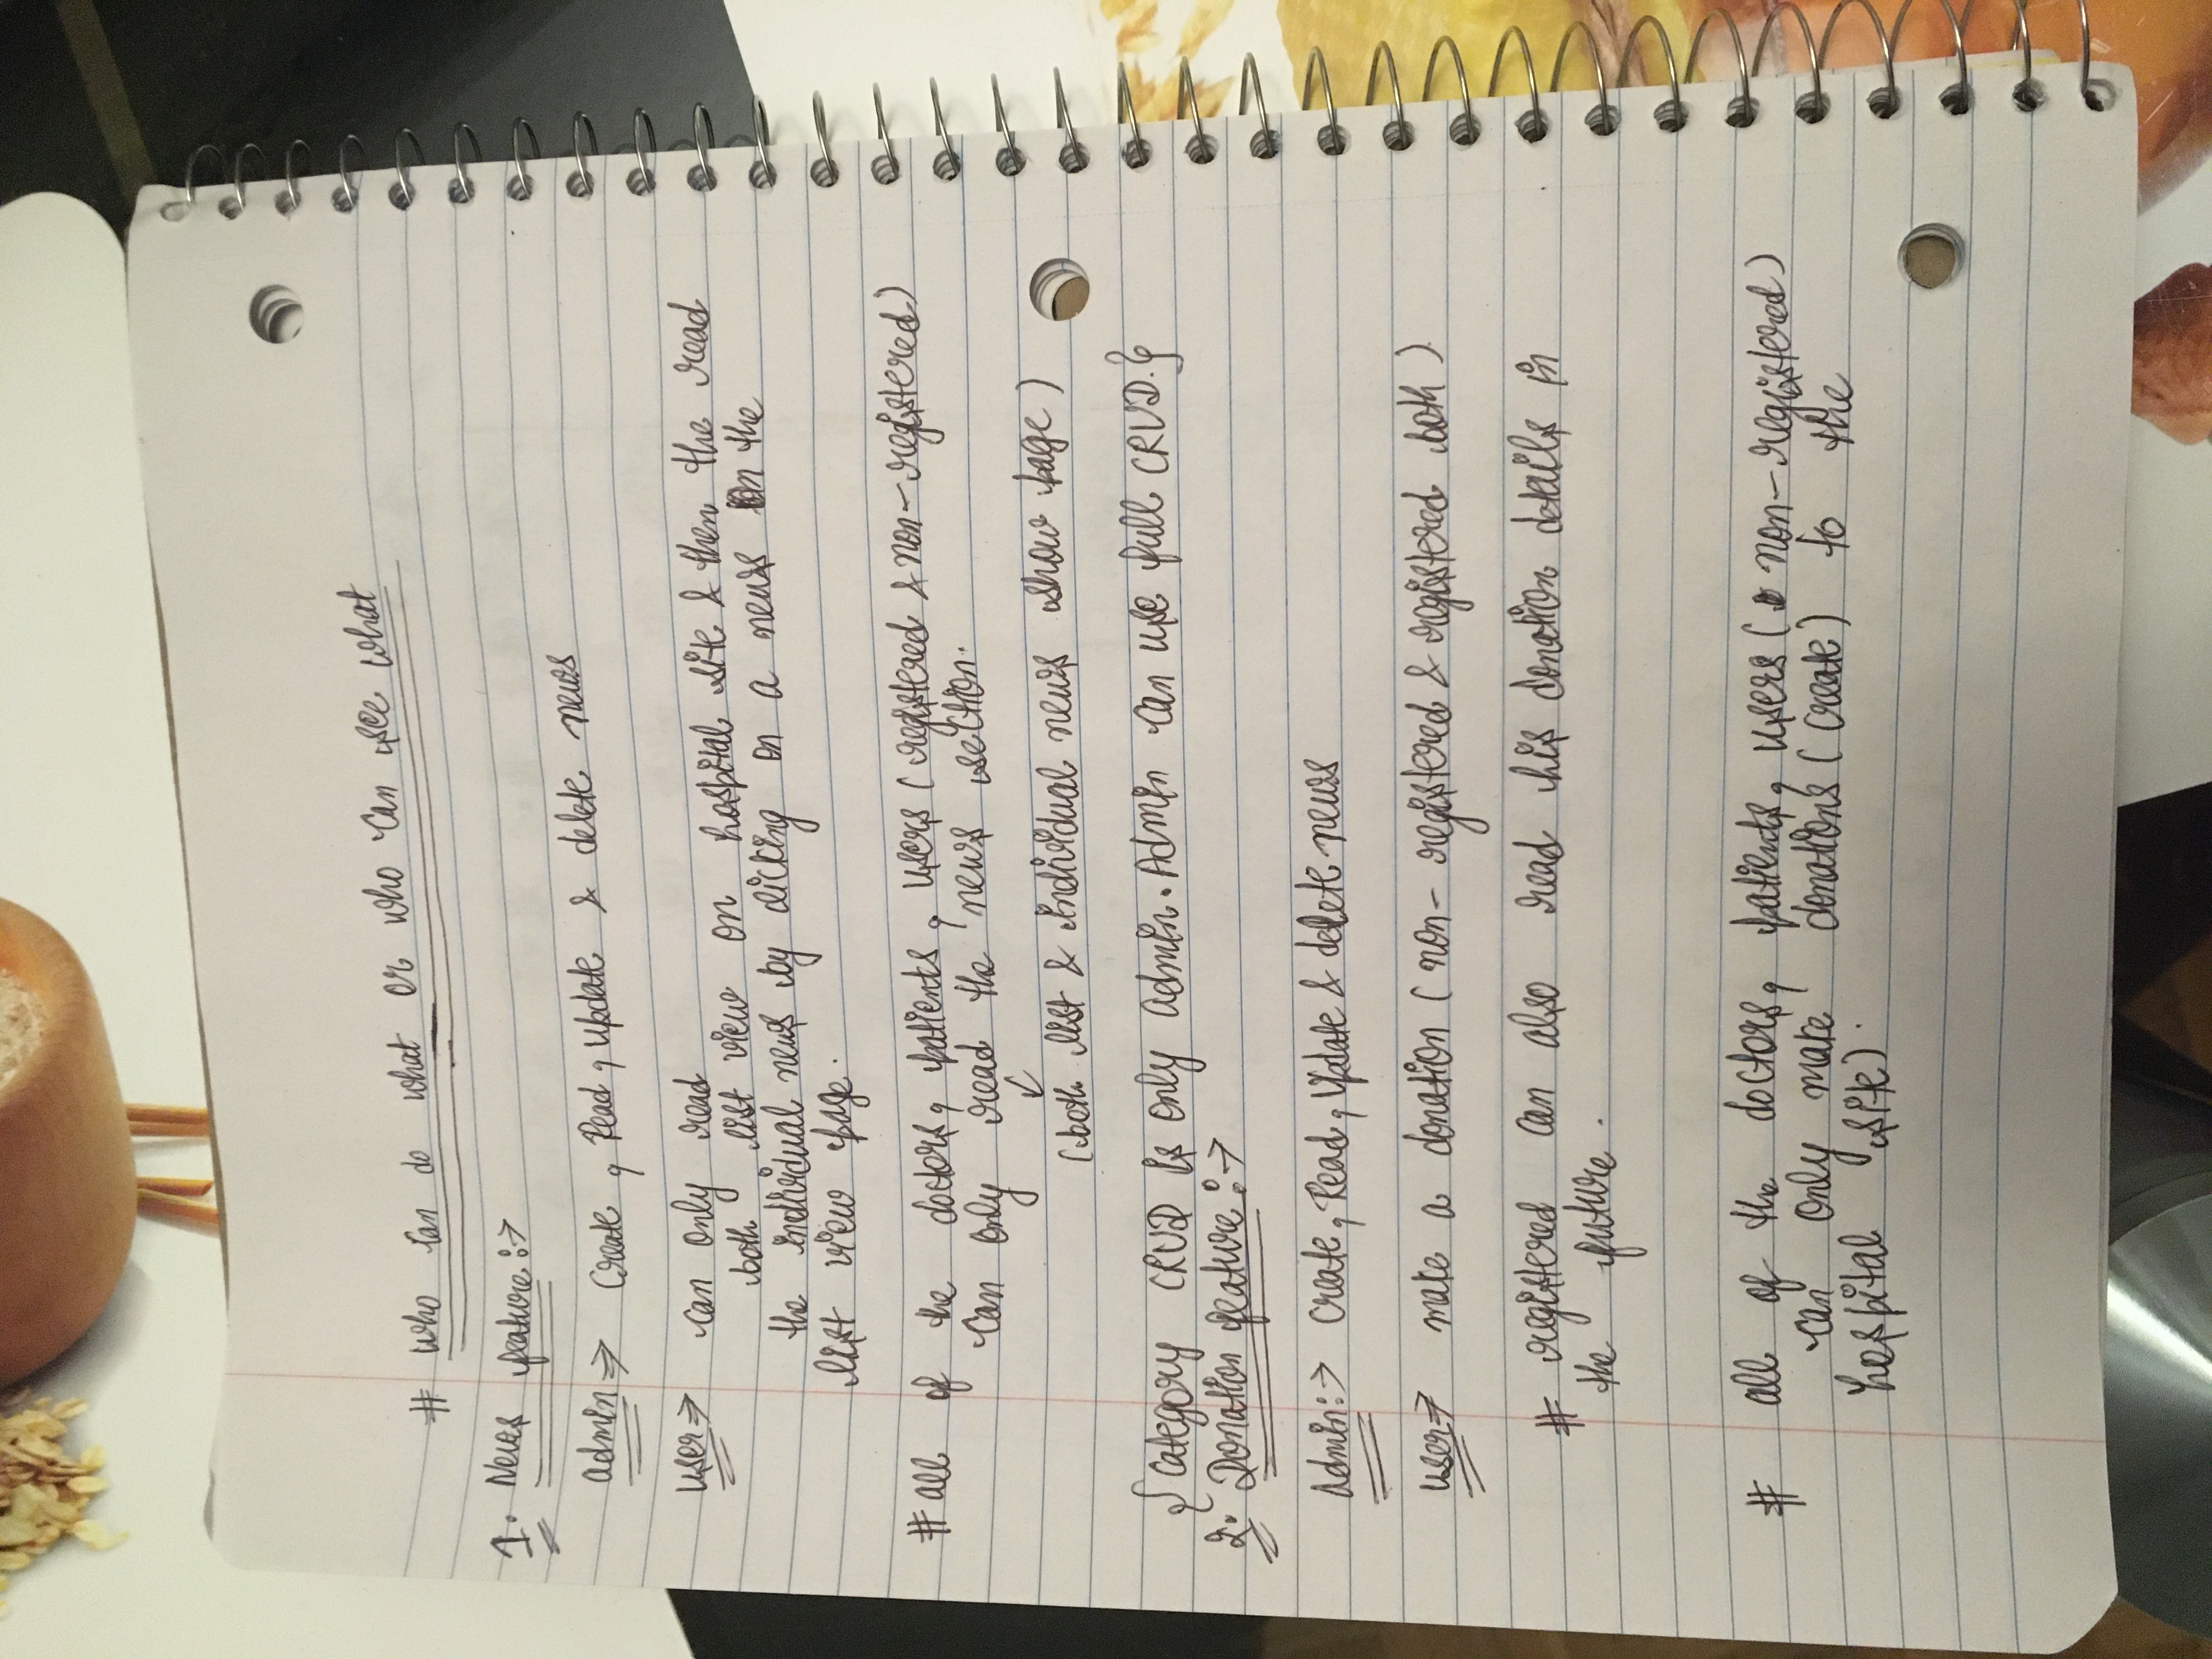 # who can do what or who can see what
1. News feature :→
admin ⇒ Create, Read, update & delete news
user ⇒ can only read
both list view on hospital site & then the read
the individual news by clicking on a news on the
list view page.
# all of the doctors, patients, users (registered & non-registered)
can only read the news section.
↙
(both list & individual news show page)
{Category CRUD is only admin. Admin can use full CRUD.}
2. Donation feature :→
Admin :→ Create, Read, Update & delete news
user ⇒ make a donation (non-registered & registered both).
# registered can also read his donation details in
the future.
# all of the doctors, patients, users (non-registered)
can only make donations (create) to the
hospital site).